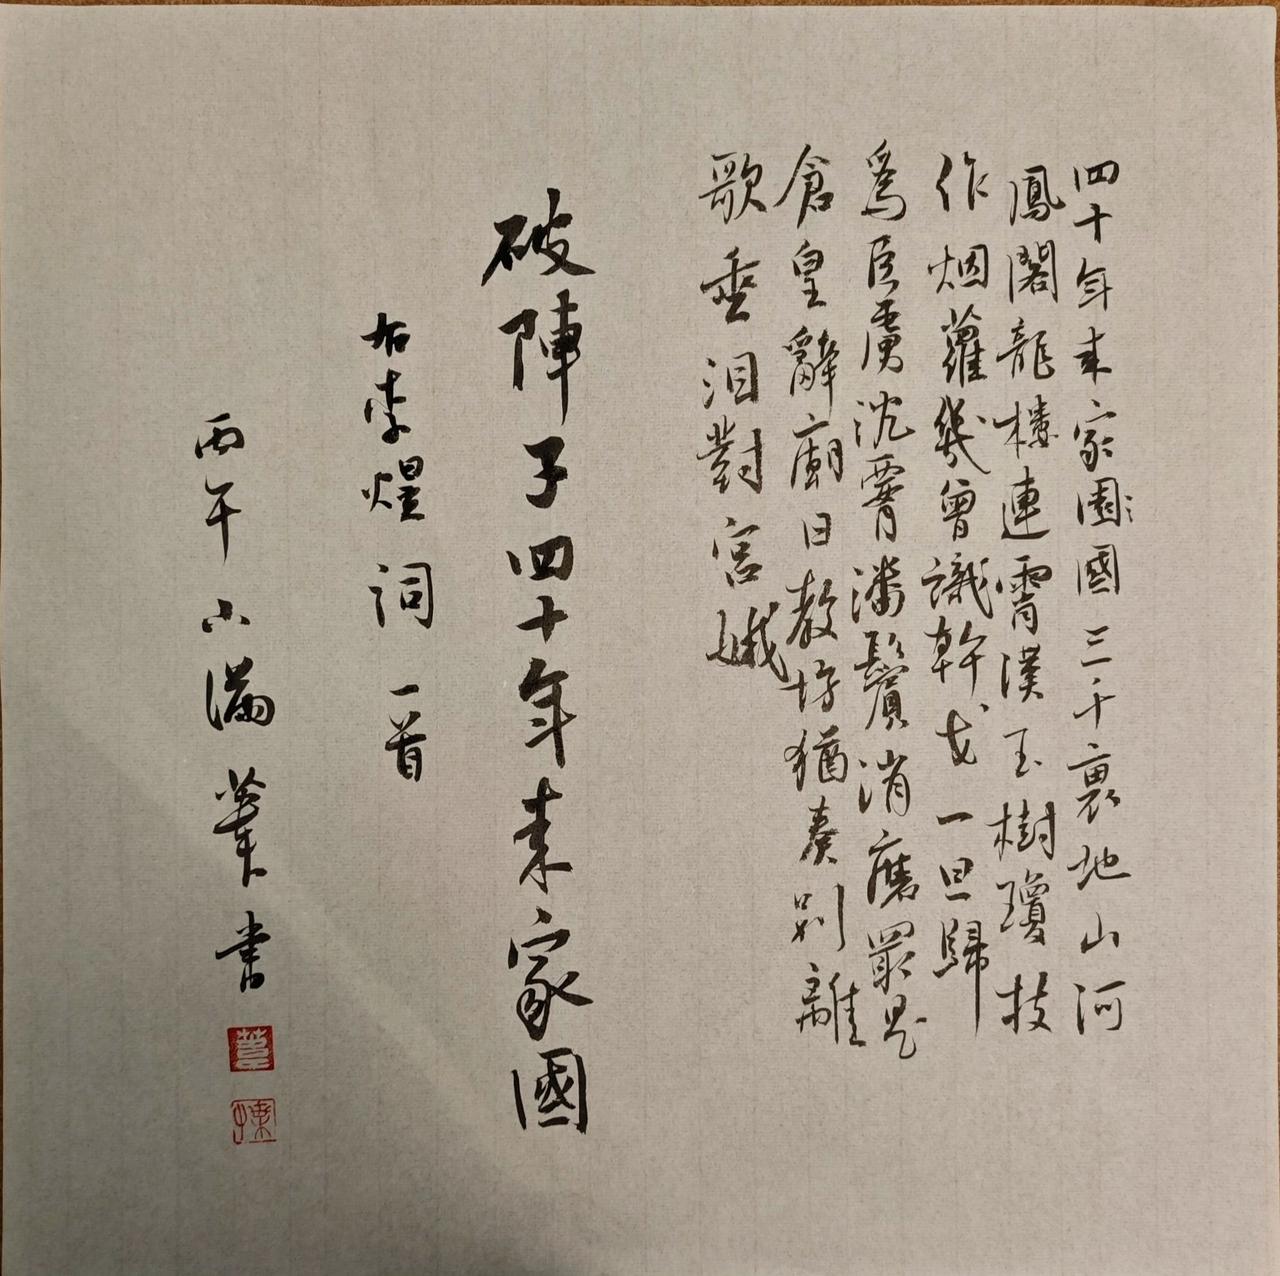 四十年来家園國三千裏地山河
鳳閣龍樓連霄漢玉樹瓊枝
作烟蘿幾曾識幹戈一旦歸
爲臣虜沈腰潘鬢消磨最是
倉皇辭廟日教坊猶奏別離
歌垂泪對宮娥
破陣子四十年来家國
右李煜詞一首
丙午小滿書